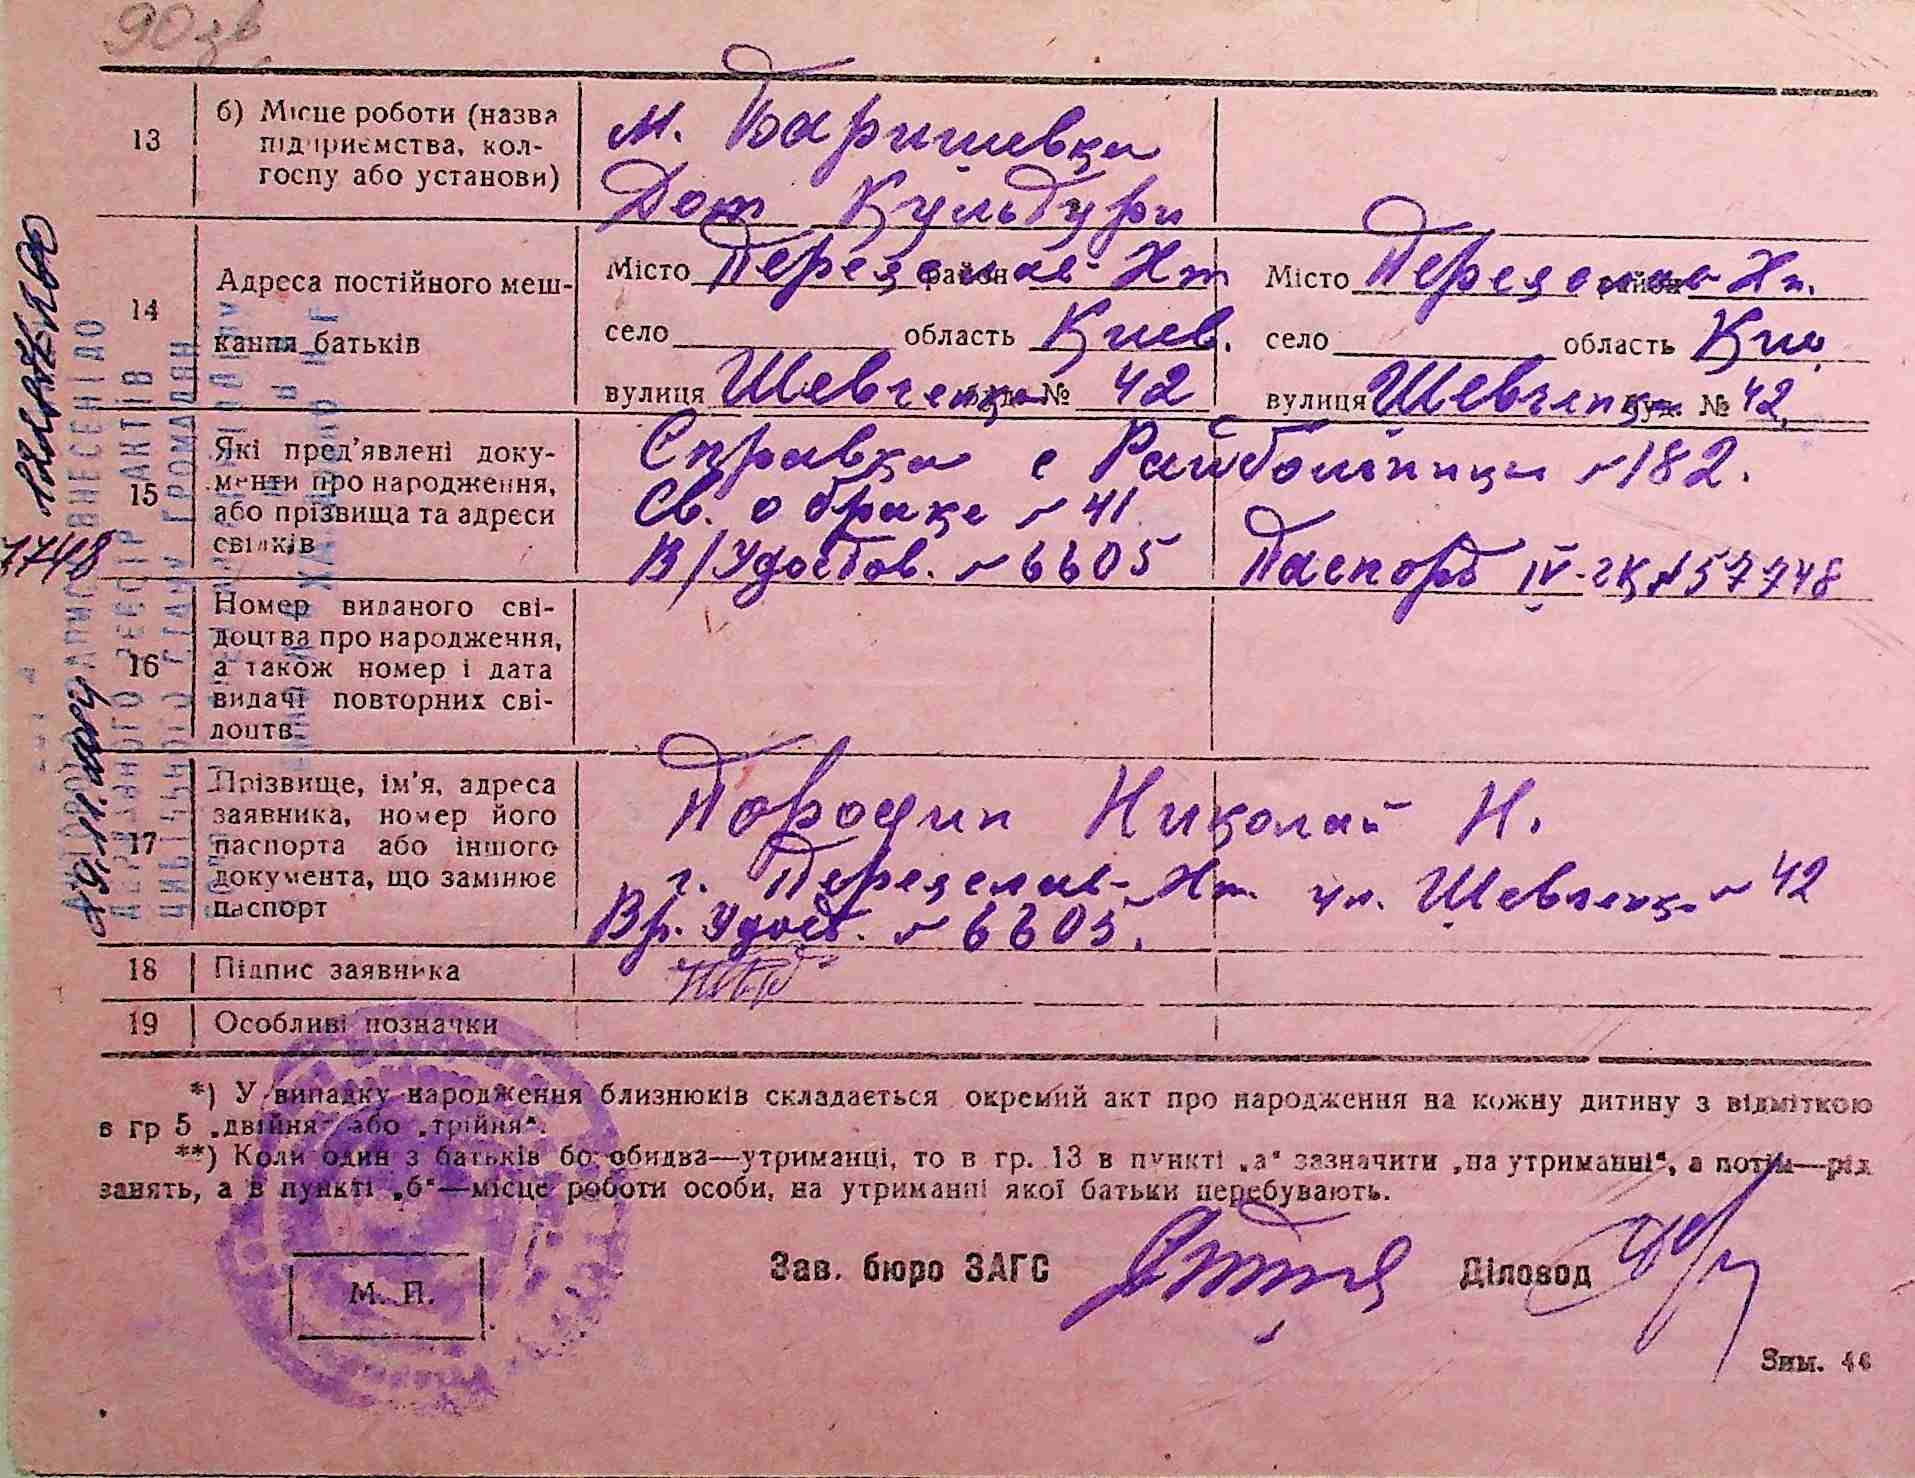 90 зв
13
б) Місце роботи (назва
підприємства, кол-
госпу або установи)
м. Баришевка
Дом Культури
14
Адреса постійного меш-
кання батьків
Місто Переяслав-Хм район
село область Киев.
вулиця Шевченко буд. № 42
Місто Переяслав Хм. район
село область Кив.
вулиця Шевченко буд. № 42
15
Які пред'явлені доку-
менти про народження,
або прізвища та адреси
свідків
Справка с Райболницы № 182.
Св. о браке № 41
В/Удостов. № 6605
Паспорт IV-гк № 57748
16
Номер виданого сві-
доцтва про народження,
а також номер і дата
видачі повторних сві-
доцтв
17
Прізвище, ім'я, адреса
заявника, номер його
паспорта або іншого
документа, що замінює
паспорт
Породин Николай Н.
г. Переяслав-Хм. ул. Шевченко № 42
Вр. Удост. № 6605.
18
Підпис заявника
19
Особливі позначки
*) У випадку народження близнюків складається окремий акт про народження на кожну дитину з відміткою
в гр 5 „двійня" або „трійня".
**) Коли один з батьків бо обидва—утриманці, то в гр. 13 в пункті „а" зазначити „на утриманні", а потім—рід
занять, а в пункті „б"—місце роботи особи, на утриманні якої батьки перебувають.
М. П.
Зав. бюро ЗАГС
Діловод
Зам. 44
ВНЕСЕНІ ДО
ДЕРЖАВНОГО РЕЄСТР АКТІВ
ЦИВІЛЬНОГО СТАНУ ГРОМАДЯН